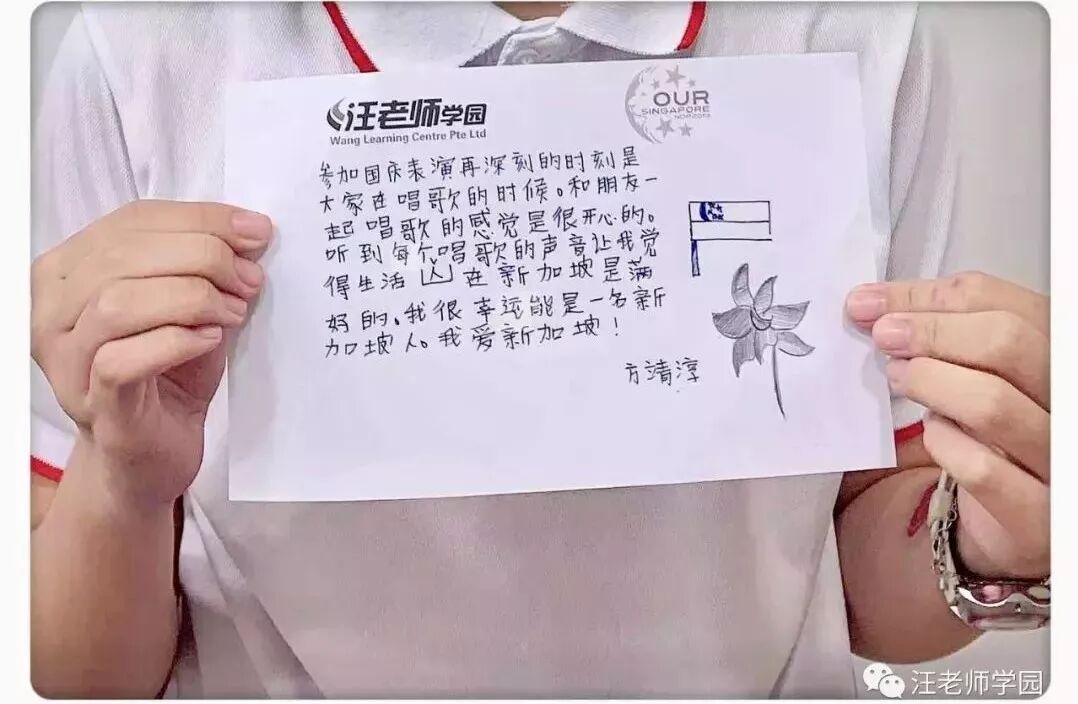 汪老师学园
Wang Learning Centre Pte Ltd
OUR
SINGAPORE
NDP2019
参加国庆表演再深刻的时刻是
大家在唱歌的时候。和朋友一
起唱歌的感觉是很开心的。
听到每个唱歌的声音让我觉
得生活在新加坡是满
好的。我很幸运能是一名新
加坡人。我爱新加坡！
方清淳
汪老师学园